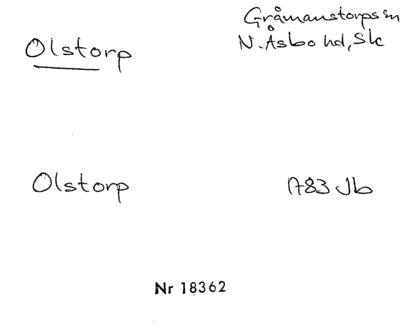 Olstorp
Gråmanstorps sn
N. Åsbo hd, Sk
Olstorp
1783 Jb
Nr 18362